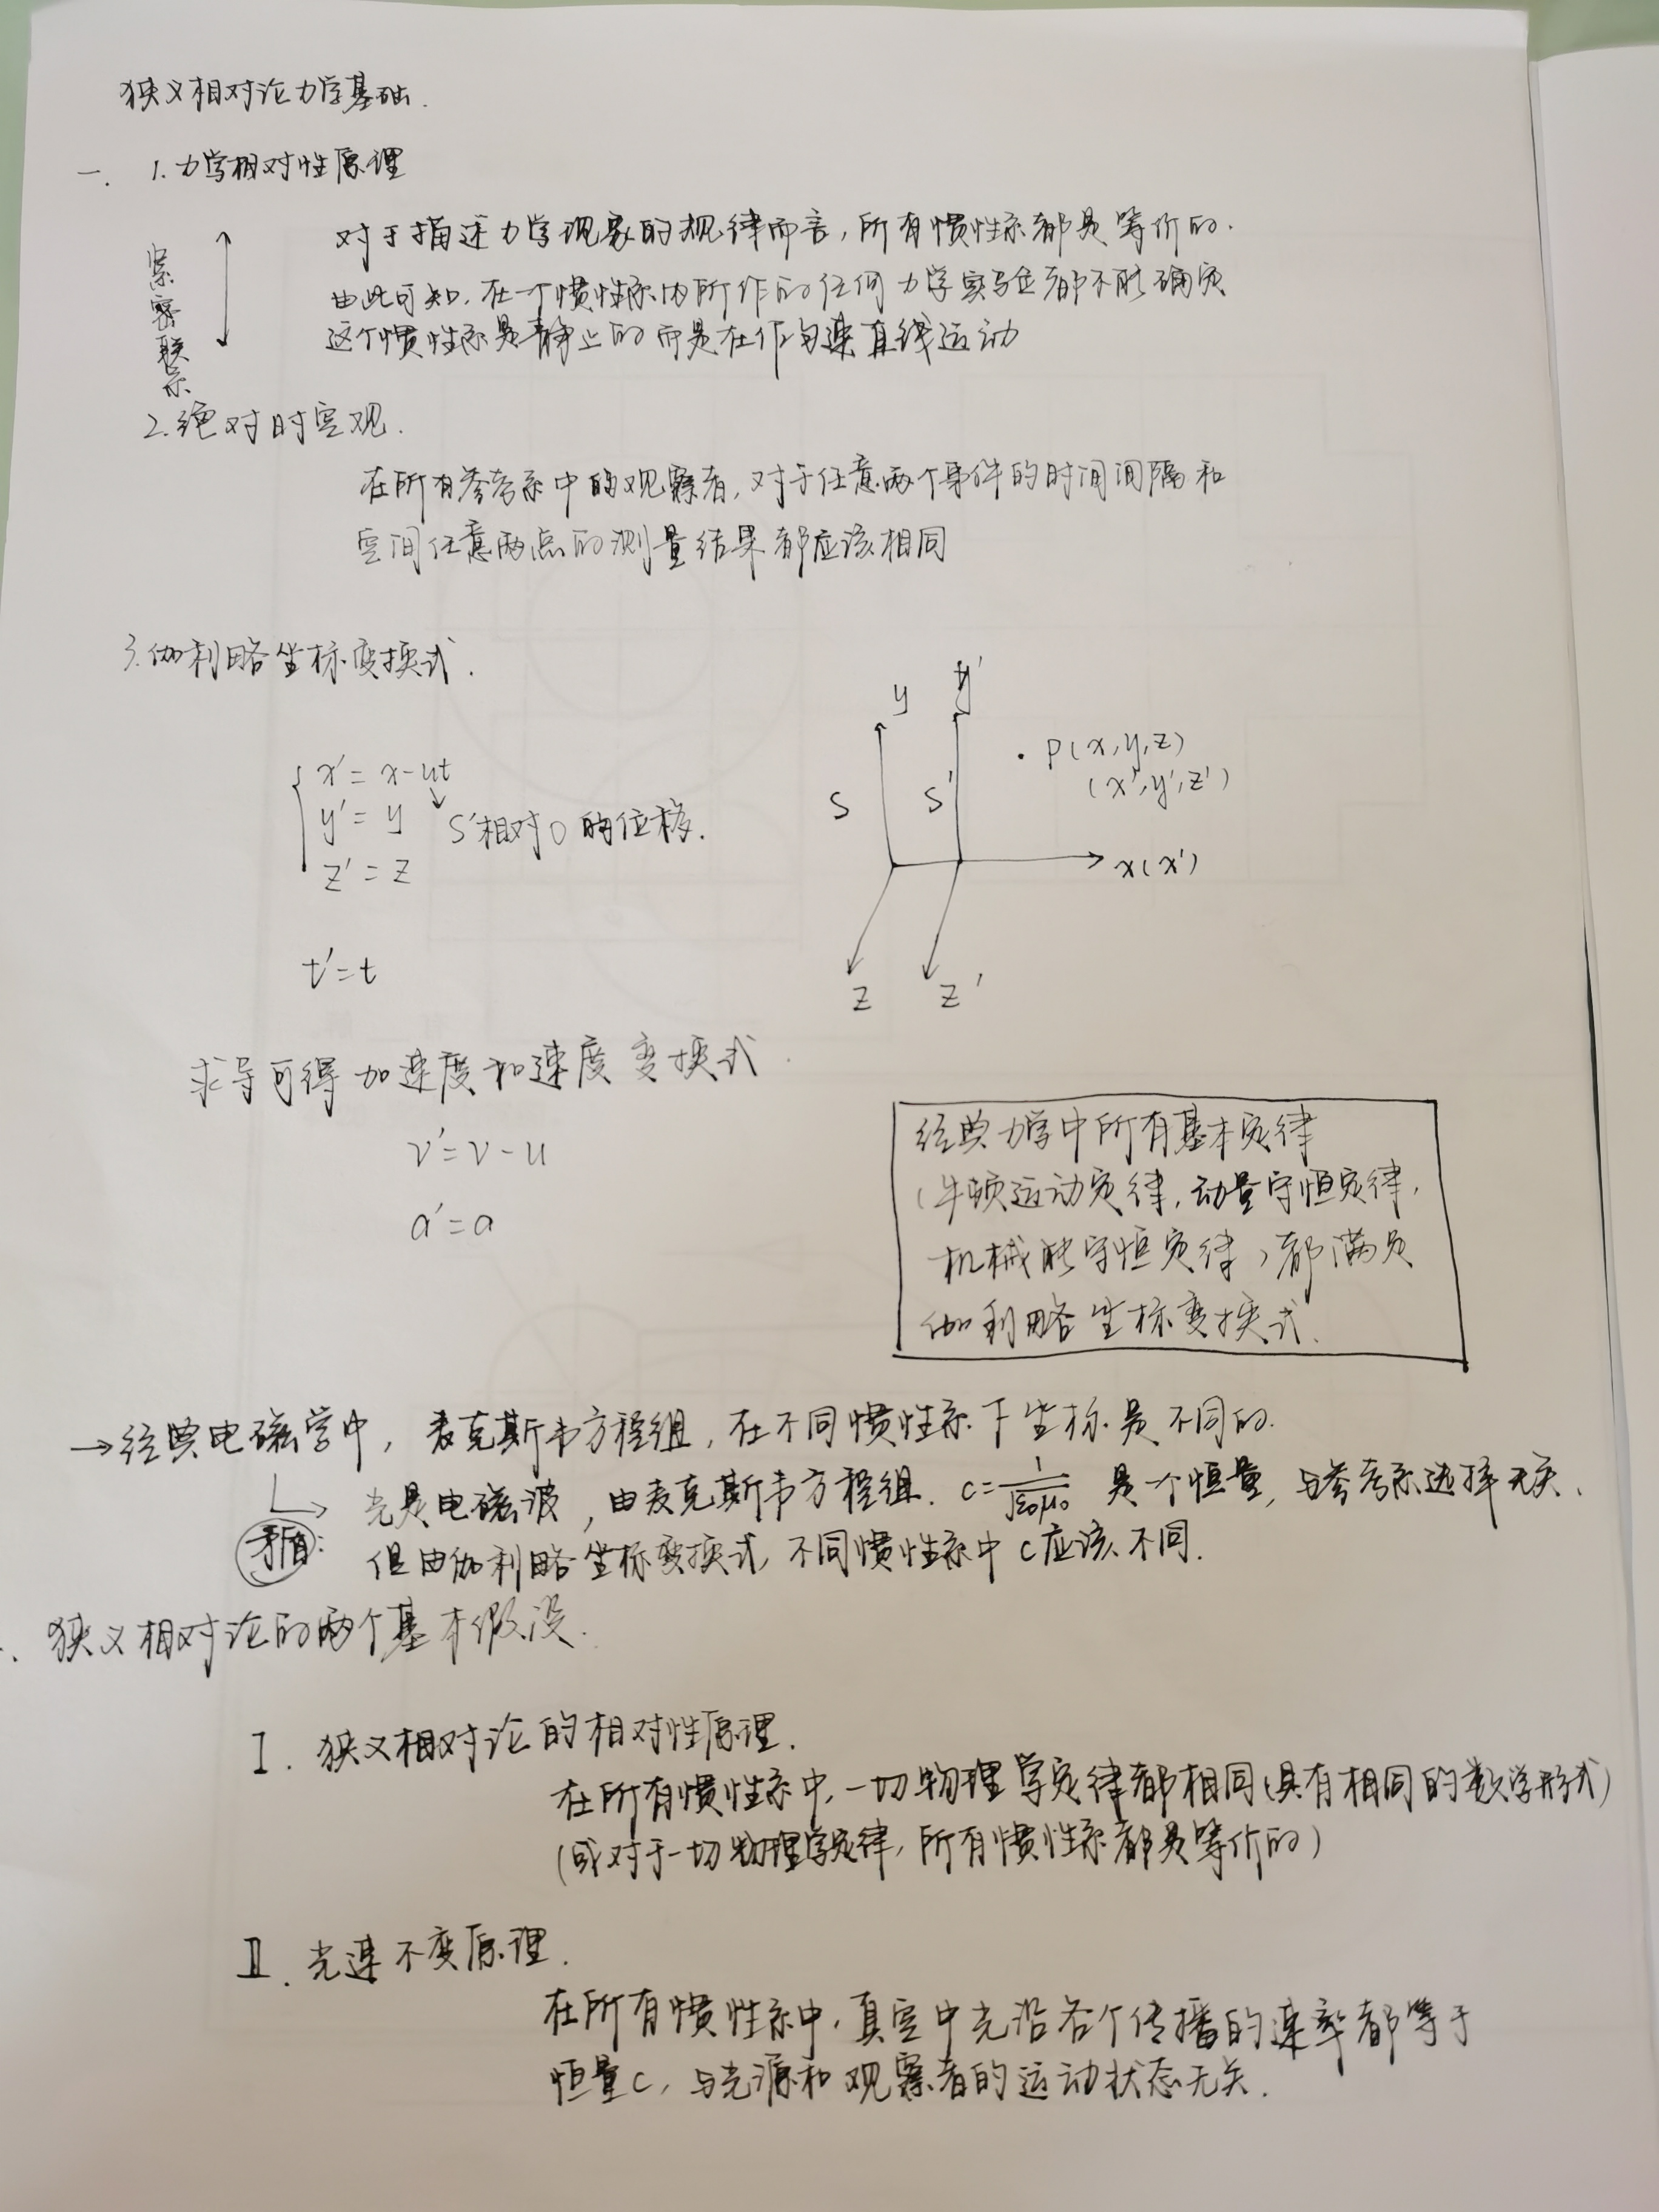 狭义相对论力学基础.
一. 1.力学相对性原理
对于描述力学现象的规律而言,所有惯性系都是等价的.
由此可知,在一个惯性系内所作的任何力学实验都不能确定
这个惯性系是静止的而是在作匀速直线运动
紧密联系
2.绝对时空观.
在所有参考系中的观察者,对于任意两个事件的时间间隔和
空间任意两点的测量结果都应该相同
3.伽利略坐标变换式.
x'=x-ut
y'=y
S'相对O的位移.
z'=z
t'=t
y y'
S S'
·P(x,y,z)
(x',y',z')
x(x')
z z'
求导可得加速度和速度变换式.
v'=v-u
a'=a
经典力学中所有基本定律
(牛顿运动定律,动量守恒定律,
机械能守恒定律)都满足
伽利略坐标变换式.
→经典电磁学中,麦克斯韦方程组,在不同惯性系下坐标是不同的.
光是电磁波,由麦克斯韦方程组. c=1/√ε₀μ₀ 是一个恒量,与参考系选择无关.
矛盾: 但由伽利略坐标变换式,不同惯性系中c应该不同.
. 狭义相对论的两个基本假设.
I. 狭义相对论的相对性原理.
在所有惯性系中,一切物理学定律都相同(具有相同的数学形式)
(或对于一切物理学定律,所有惯性系都是等价的)
II. 光速不变原理.
在所有惯性系中,真空中光沿各个传播的速率都等于
恒量c,与光源和观察者的运动状态无关.